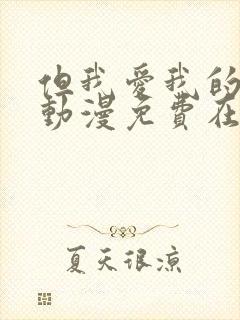 但我愛我的
動漫免費在
夏天很涼